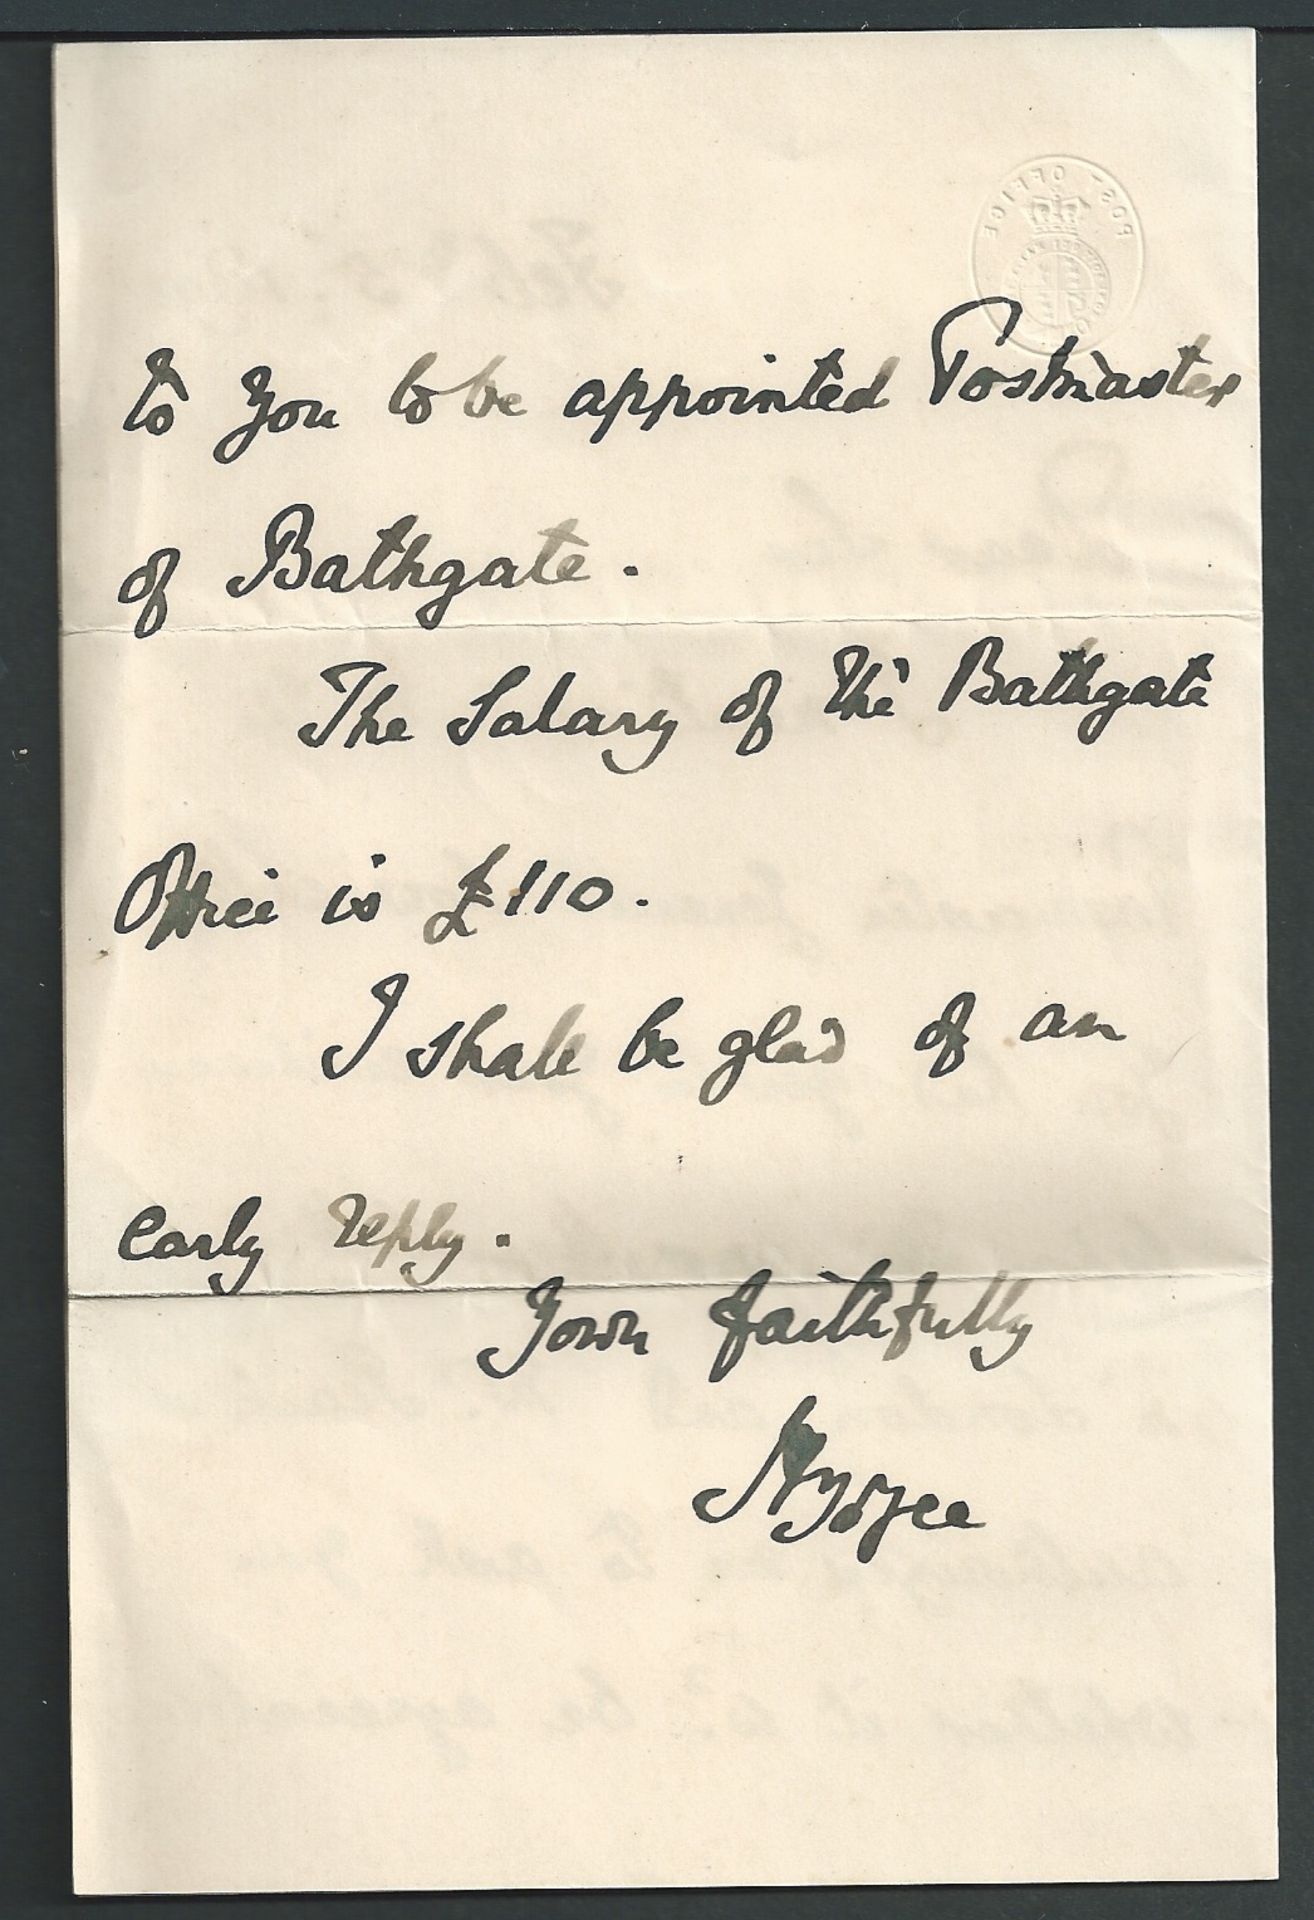 to you to be appointed Postmaster
of Bathgate.
The Salary of the Bathgate
Office is £110.
I shall be glad of an
early reply.
Yours faithfully
POST OFFICE